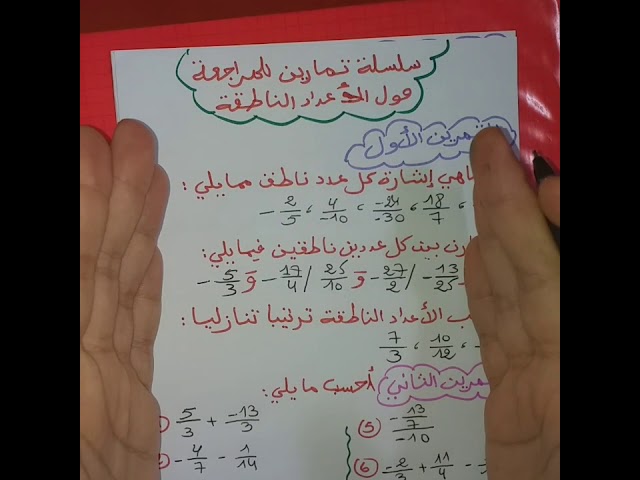 سلسلة تمارين للمراجعة
حول الأعداد الناطقة
التمرين الأول
ماهي إشارة كل عدد ناطق مما يلي :
18/7 ، -24/-30 ، 4/-10 ، -2/5
قارن بين كل عددين ناطقين فيما يلي:
-13/25 / -27/2 و 25/10 / -17/4 و -5/3
رتب الأعداد الناطقة ترتيبا تنازليا :
، 10/12 ، 7/3
التمرين الثاني أحسب ما يلي :
5/3 + -13/3
(5) -13/7/-10
-4/7 - 1/14
(6) -2/3 + 11/4 -